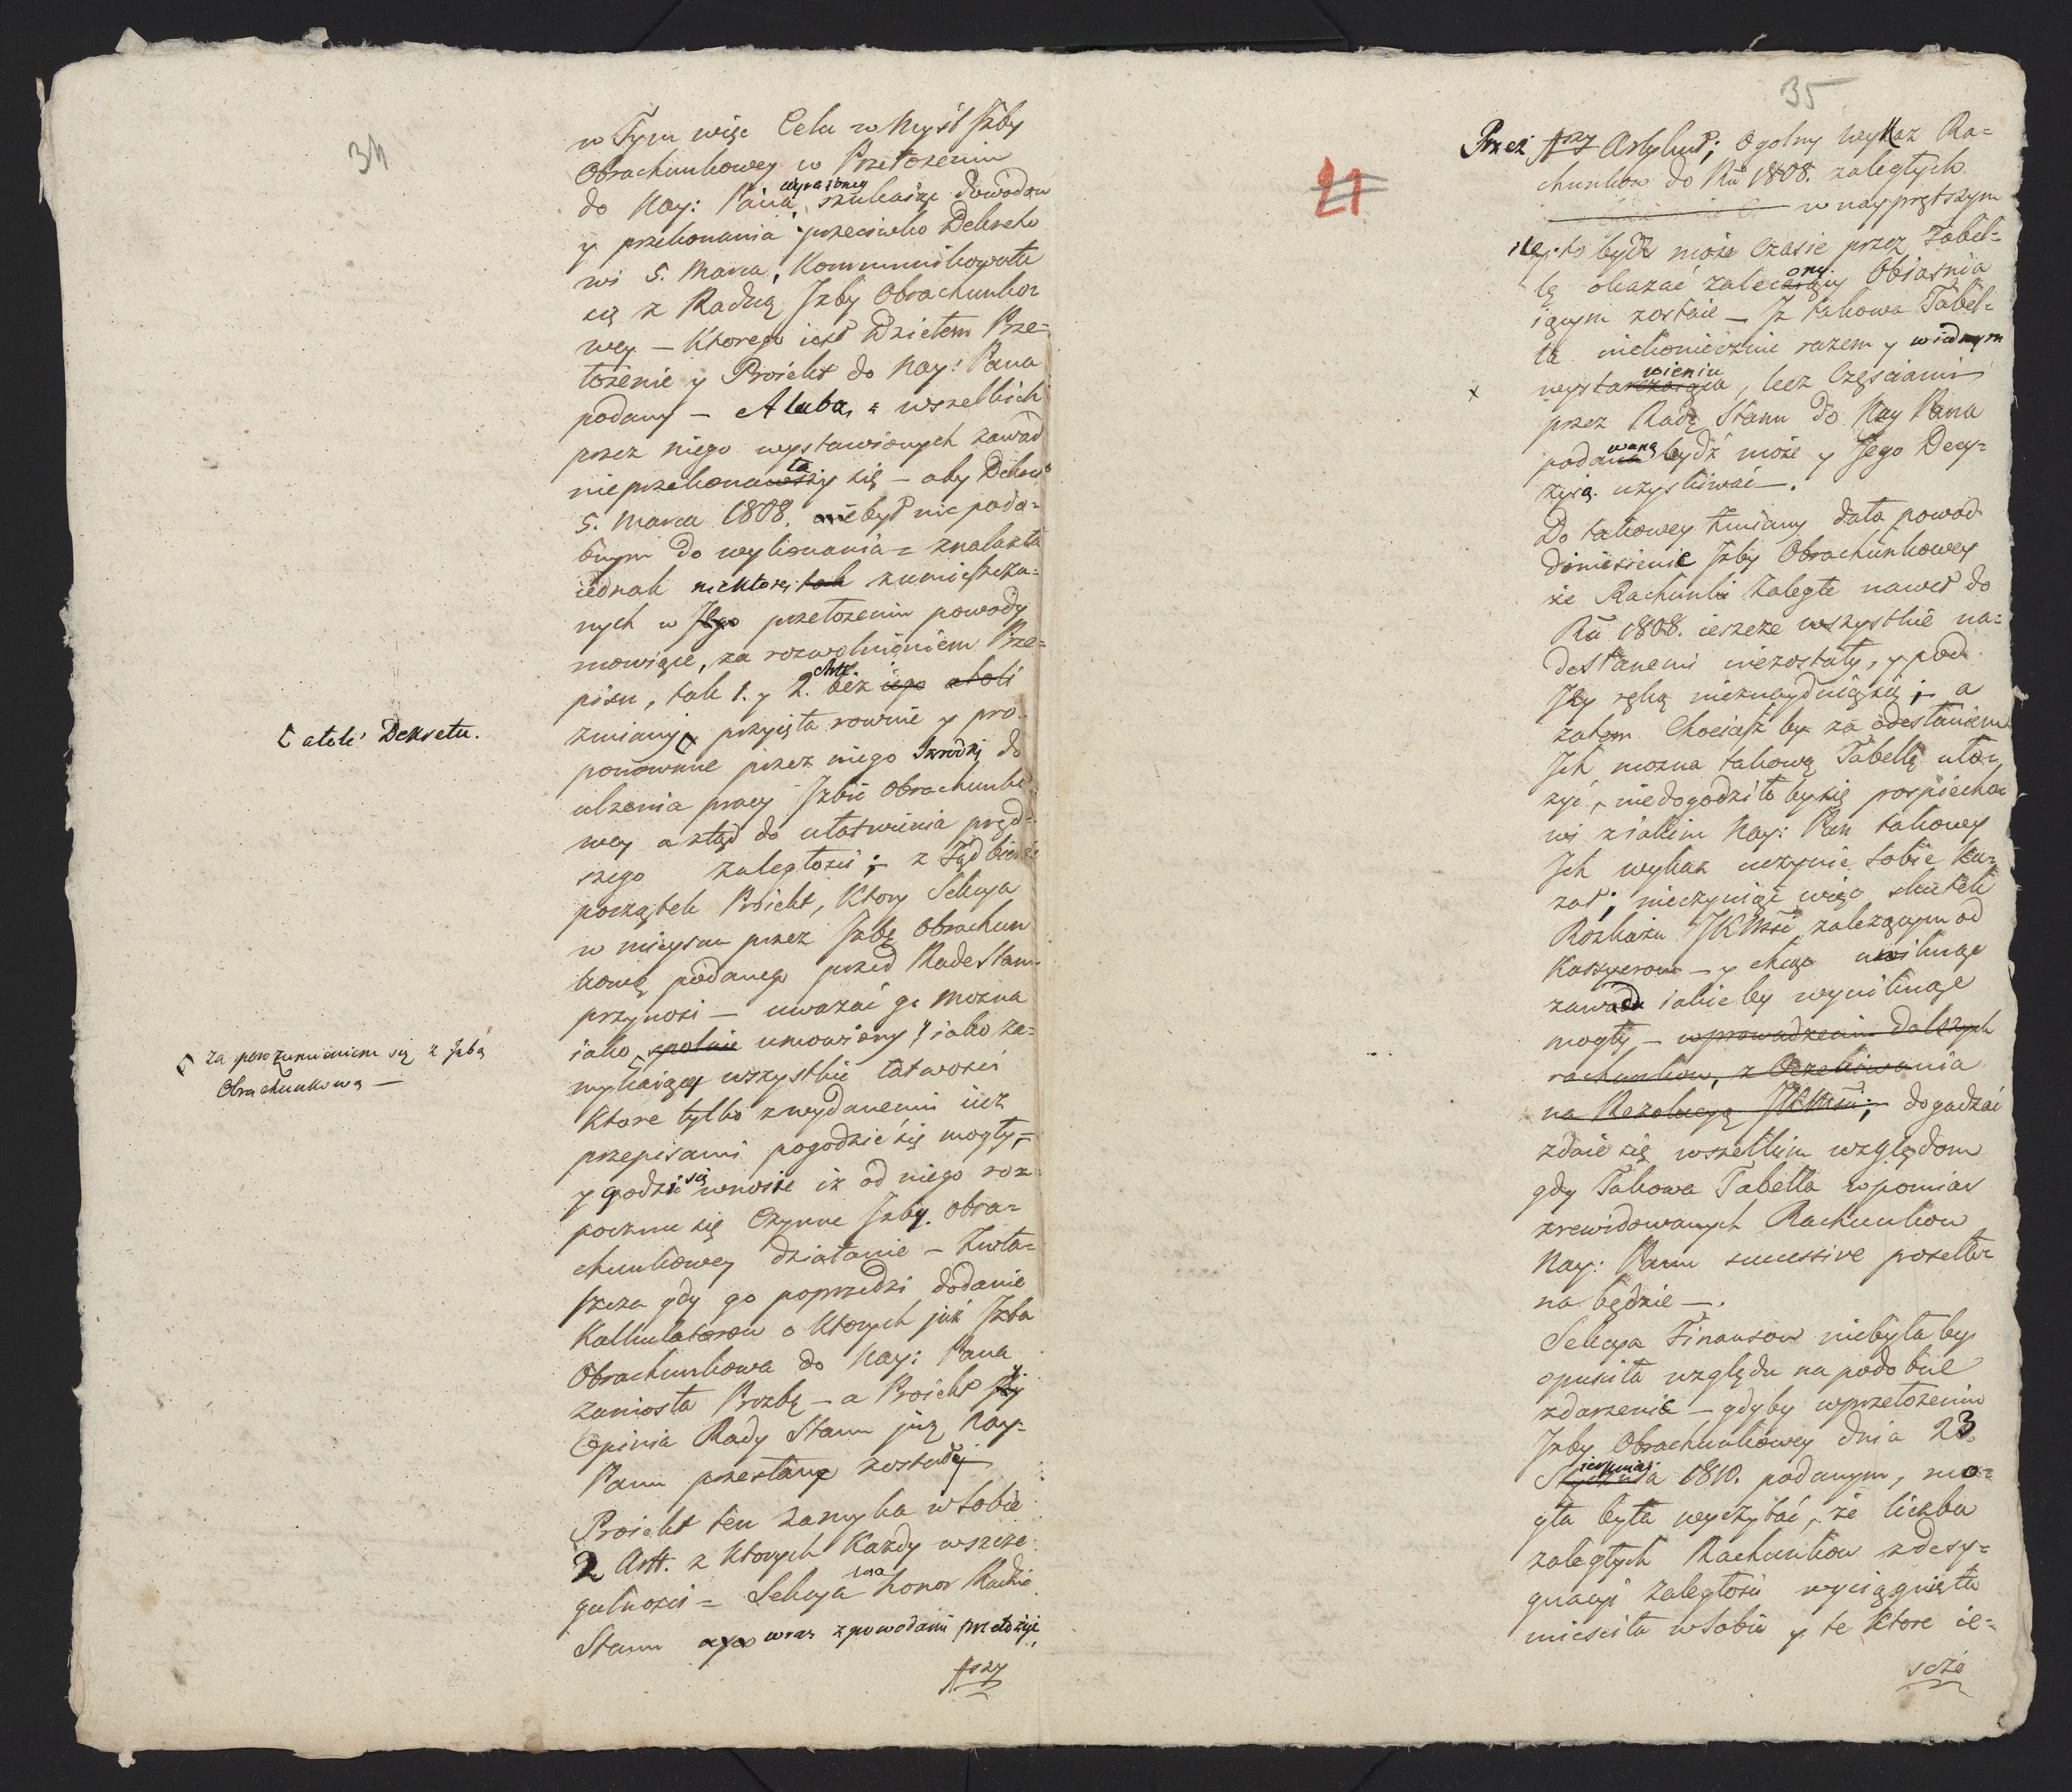 34
w Tym więc Celu w Myśl Jzby
Obrachunkowey w Przełożeniu
do Nay: Pana wyraźoney szukaiąc dowodow
y przekonania przeciwko Dekreto
wi 5. Marca, Kommunikowała
się z Radcą Jzby Obrachunko
wey – Ktorego iest dziełem Prze=
łożenie y Proiekt do Nay: Pana
podany – A lubo, z wszelkich
przez niego wystawionych zawad
nieprzekonała się – aby Dekret
5. Marca 1808. był nie podo=
bnym do wykonania = znalazła
iednak niektore tak zumieszcza=
nych w Jego przełożeniu powody
mowiące, za rozwolnieniem Prze=
pisu, tak 1. y 2. Artt. bez iego atoli
zmiany, przyięła rownie y pro
ponowane przez niego Srzodki do
ulżenia pracy Jzbie Obrachunko
wey a ztąd do ułatwienia pręd=
szego zaległości; – z Tąd bierze
początek Proiekt, Ktory Sekcya
w mieyscu przez Jzbę Obrachun
kową podanego przed Radę Stanu
przynosi – uważać go można
iako spolnie umowiony y iako za=
mykaiący wszystkie łatwości
Ktore tylko z wydanemi iuż
przepisami pogodzić się mogły,=
y godzi się wnosić iż od niego roz
pocznie się Czynne Jzby obra=
chunkowey działanie – Zwła=
szcza gdy go poprzedzi dodanie
Kalkulatorow o Ktorych już Jzba
Obrachunkowa do Nay: Pana
zaniosła Prozbę – a Proiekt y
Opinia Rady Stanu już Nay=
Panu przesłane zostały
Proiekt ten zamyka w sobie
2 Artt. z Ktorych Każdy w szcze
gulności = Sekcya ma honor Radzie
Stanu wraz z powodami przełożyć,
1szy
atoli Dekretu.
za porozumieniem się z Jzbą
Obrachunkową –
35
21
Przez 1szy Artykuł; Ogolny wykaz Ra=
chunkow do Ru 1808. zaległych
w nayprętszym
ile to bydź może Czasie przez Tabel=
lę okazać zalecony Obiasnia
iącym zostaie – Jż takowa Tabel=
la niekoniecznie razem y widnym
wystawieniu, lecz Częściami
przez Radę Stanu do Nay Pana
podawaną bydź może y Jego Decy=
zyią uzyskiwać –.
Do takowey zmiany dała powod
doniesienie Jzby Obrachunkowey
że Rachunki Zaległe nawet do
Ru 1808. ieszcze wszystkie na=
desłanemi niezostały, y pod
Jey ręką nieznayduią się; – a
zatem Chociaż by za odesłaniem
Jch można takową Tabellę ułoz
żyć, niedogodziło by się pospiecho
wi z iakim Nay: Pan takowy
Jch wykaz uczynić sobie ka=
zał; nieczyniąc więc skutek
Rozkazu JKMści zależącym od
Kassyerow – y chcąc
zawada iakie by wyniknąć
mogły – w prowadzeniu dalszych
rachunkow, z Oczekiwania
na Rezolucyą JKMści; dogadzać
zdaie się wszelkim względom
gdy Takowa Tabella w pomiar
zrewidowanych Rachunkow
Nay: Panu successive posełła
na będzie –.
Sekcya Finansow niebyła by
opuściła względu na podobne
zdarzenie – gdyby w przełożeniu
Jzby Obrachunkowey dnia 23.
Sierpnia 1810. podanym, mo=
gła była wyczytać, że liczba
zaległych Rachunkow z desy=
gnacyi zaległości wyciągnięta
mieściła w sobie y te Ktore ie=
scże